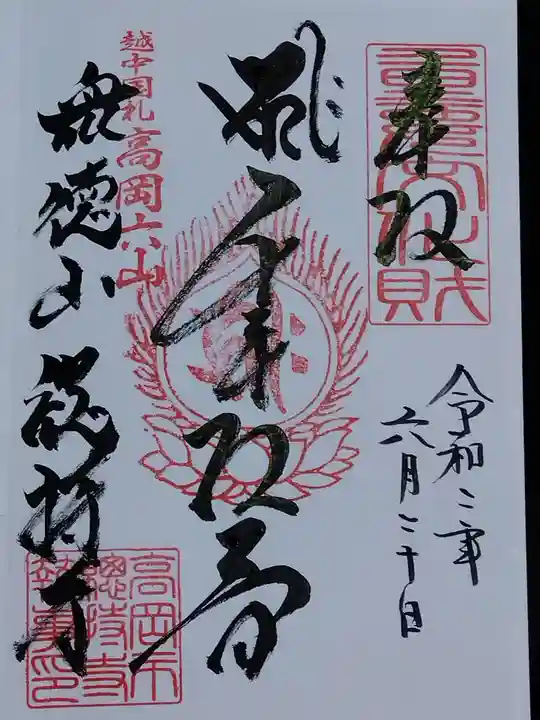 奉拝
令和二年
六月二十日
千手観音
越中国札高岡六山
衆徳山 総持寺
高岡市
總持寺
執事印